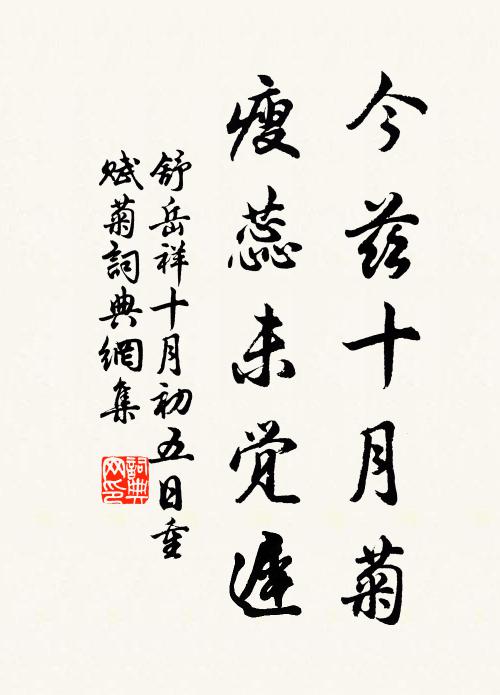 今兹十月菊
瘦蕊未觉遲
舒岳祥十月初五日重
赋菊詞典網集
詞典网印